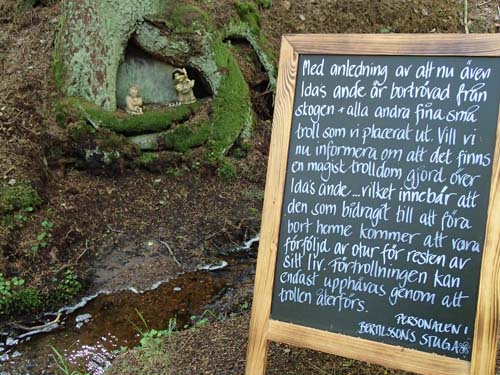 Med anledning av att nu även
Idas ande är bortrövad från
skogen + alla andra fina små
troll som vi placerat ut. Vill vi
nu informera om att det finns
en magisk trolldom gjord över
Ida's ande... vilket innebär att
den som bidragit till att föra
bort henne kommer att vara
förföljd av otur för resten av
sitt liv. Förtrollningen kan
endast upphävas genom att
trollen återförs.
PERSONALEN I
BERTILSSONS STUGA